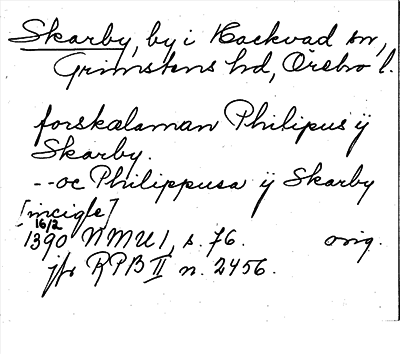 Skarby, by i Hackvad sn,
Grimstens hd, Örebro l.
forskælaman Philipus ij
Skarby.
--oc Philippusa ij Skarby
[incigle]
16/2
1390 NMU 1, s. 76. orig.
jfr RPB II n. 2456.